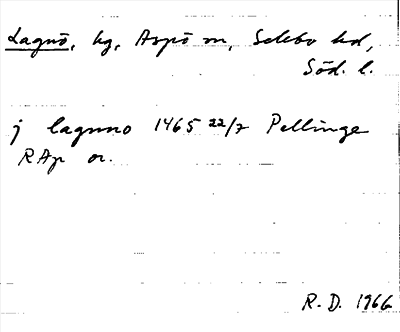 Lagnö, hg, Aspö sn, Selebo hd,
Söd. l.
j lagnno 1465 22/7 Pellinge
RAp or.
R. D. 1966